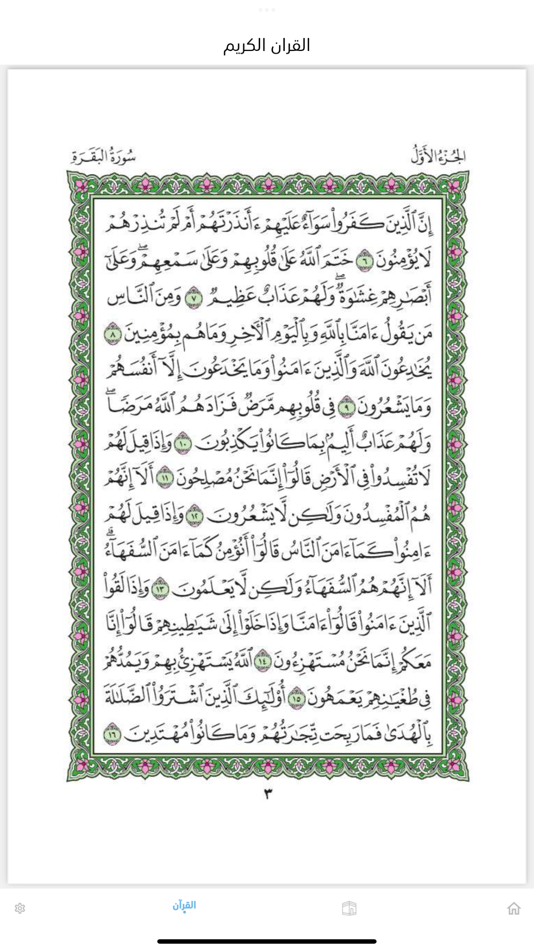 القران الكريم
الجُزْءُ الأَوَّلُ
سُورَةُ البَقَرَةِ
إِنَّ ٱلَّذِينَ كَفَرُوا۟ سَوَآءٌ عَلَيْهِمْ ءَأَنذَرْتَهُمْ أَمْ لَمْ تُنذِرْهُمْ
لَا يُؤْمِنُونَ ٦ خَتَمَ ٱللَّهُ عَلَىٰ قُلُوبِهِمْ وَعَلَىٰ سَمْعِهِمْ ۖ وَعَلَىٰٓ
أَبْصَـٰرِهِمْ غِشَـٰوَةٌ ۖ وَلَهُمْ عَذَابٌ عَظِيمٌ ٧ وَمِنَ ٱلنَّاسِ
مَن يَقُولُ ءَامَنَّا بِٱللَّهِ وَبِٱلْيَوْمِ ٱلْـَٔاخِرِ وَمَا هُم بِمُؤْمِنِينَ ٨
يُخَـٰدِعُونَ ٱللَّهَ وَٱلَّذِينَ ءَامَنُوا۟ وَمَا يَخْدَعُونَ إِلَّآ أَنفُسَهُمْ
وَمَا يَشْعُرُونَ ٩ فِى قُلُوبِهِم مَّرَضٌ فَزَادَهُمُ ٱللَّهُ مَرَضًا ۖ
وَلَهُمْ عَذَابٌ أَلِيمٌۢ بِمَا كَانُوا۟ يَكْذِبُونَ ١٠ وَإِذَا قِيلَ لَهُمْ
لَا تُفْسِدُوا۟ فِى ٱلْأَرْضِ قَالُوٓا۟ إِنَّمَا نَحْنُ مُصْلِحُونَ ١١ أَلَآ إِنَّهُمْ
هُمُ ٱلْمُفْسِدُونَ وَلَـٰكِن لَّا يَشْعُرُونَ ١٢ وَإِذَا قِيلَ لَهُمْ
ءَامِنُوا۟ كَمَآ ءَامَنَ ٱلنَّاسُ قَالُوٓا۟ أَنُؤْمِنُ كَمَآ ءَامَنَ ٱلسُّفَهَآءُ ۗ
أَلَآ إِنَّهُمْ هُمُ ٱلسُّفَهَآءُ وَلَـٰكِن لَّا يَعْلَمُونَ ١٣ وَإِذَا لَقُوا۟
ٱلَّذِينَ ءَامَنُوا۟ قَالُوٓا۟ ءَامَنَّا وَإِذَا خَلَوْا۟ إِلَىٰ شَيَـٰطِينِهِمْ قَالُوٓا۟ إِنَّا
مَعَكُمْ إِنَّمَا نَحْنُ مُسْتَهْزِءُونَ ١٤ ٱللَّهُ يَسْتَهْزِئُ بِهِمْ وَيَمُدُّهُمْ
فِى طُغْيَـٰنِهِمْ يَعْمَهُونَ ١٥ أُو۟لَـٰٓئِكَ ٱلَّذِينَ ٱشْتَرَوُا۟ ٱلضَّلَـٰلَةَ
بِٱلْهُدَىٰ فَمَا رَبِحَت تِّجَـٰرَتُهُمْ وَمَا كَانُوا۟ مُهْتَدِينَ ١٦
٣
القرآن